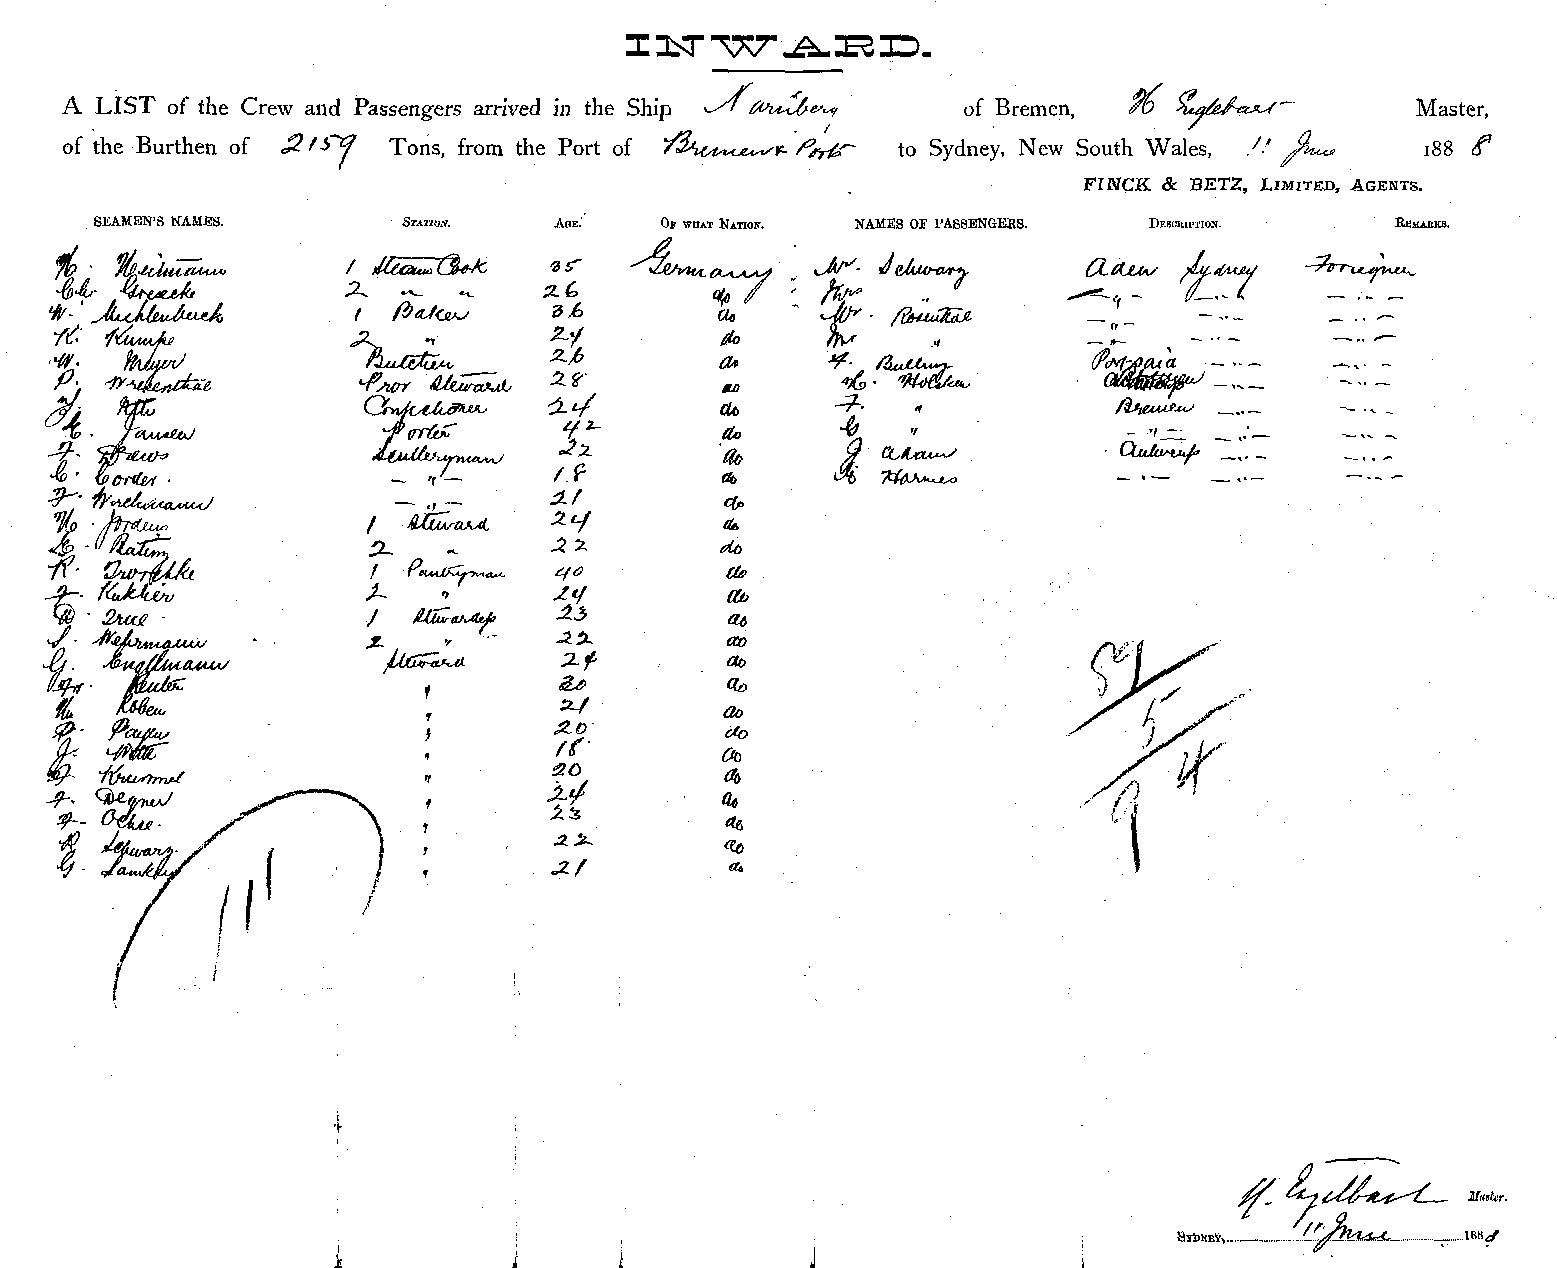 INWARD.
A LIST of the Crew and Passengers arrived in the Ship Nürnberg of Bremen, H Englebart Master,
of the Burthen of 2159 Tons, from the Port of Bremen & Ports to Sydney, New South Wales, 11 June 1888
FINCK & BETZ, LIMITED, AGENTS.
SEAMEN'S NAMES. STATION. AGE. OF WHAT NATION. NAMES OF PASSENGERS. DESCRIPTION. REMARKS.
H. Heilmann 1 Steam Cook 35 Germany Mr. Schwarz Aden Sydney Foreigner
2 " " 26 do Mrs " — " — — " —
W. 1 Baker 36 do Mr. Rosenthal — " — — " — — " —
K. Kumpe 2 " 24 do " — " — — " — — " —
W. Meyer Butcher 26 do Portsaid — " — — " —
Prov Steward 28 do H. — " — — " —
24 do F. " Bremen — " — — " —
Jansen Porter 42 do C " — " — — " — — " —
F. Sculleryman 22 do J Adam Antwerp — " — — " —
C. Corder. — " — 18 do Harmes — " — — " — — " —
F. Wichmann — " — 21 do
H. Jordens 1 Steward 24 do
2 " 22 do
R. 1 Pantryman 40 do
F. 2 " 24 do
1 Stewardess 23 do
Wehrmann 2 " 22 do
G. Engellmann Steward 24 do
Reuter " 20 do
Koben " 21 do
" 20 do
J. Witte " 18 do
Krummel " 20 do
F. Degner " 24 do
F. Ochse. " 23 do
R Schwarz. " 22 do
G. " 21 do
111
59
5
94
H. Engelbart Master.
SYDNEY, 11 June 1888